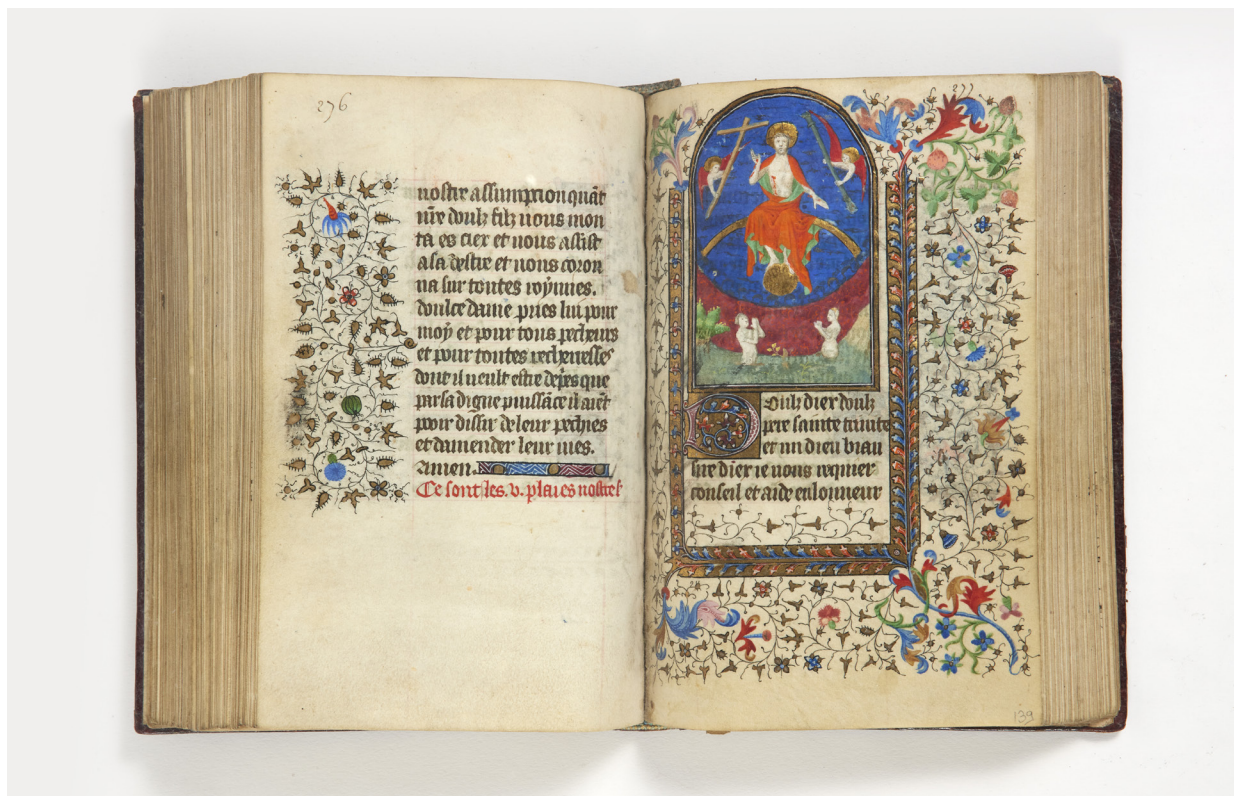 276
nostre assumption quāt
nr̄e doulz filz uous mon
ta es ciex et uous assist
a sa destre et uous coron
na sur toutes roynnes.
doulce dame pries lui pour
moy et pour tous pecheurs
et pour toutes pecheresses
dont il ueult estre depries que
par sa digne puissāce il aiēt
pooir dissir de leur pechies
et damender leur uies.
Amen.
Ce sont les .v. plaies nostre s
277
Doulz dier doulz
pere sainte trinite
et un dieu biau
sire dier ie uous requier
conseil et aide en lonneur
139